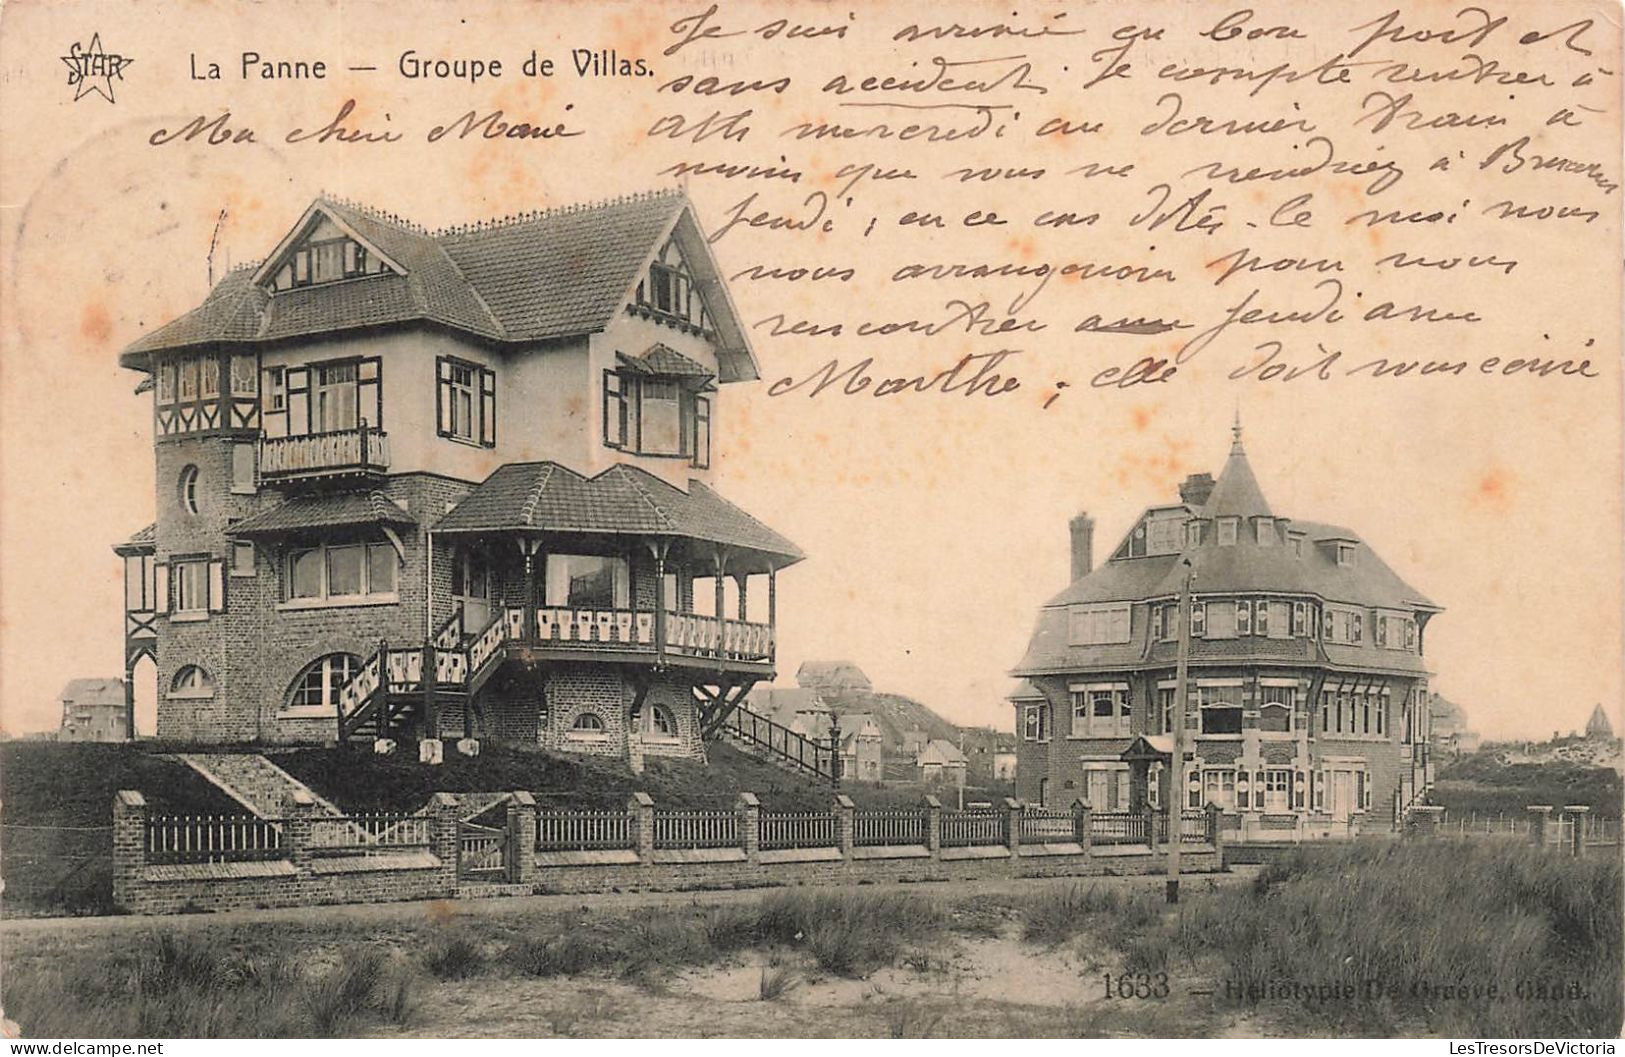 STAR
La Panne — Groupe de Villas.
Ma chère
Je suis arrivé en bon port et
sans accident. Je compte rentrer à
Ath mercredi au dernier train à
moins que vous ne viendriez à Bruxelles
Jeudi, en ce cas dites-le moi nous
nous arrangerions pour nous
rencontrer Jeudi avec
Marthe ; elle doit vous
1633 — Héliotypie De Graeve, Gand.
LesTresorsDeVictoria